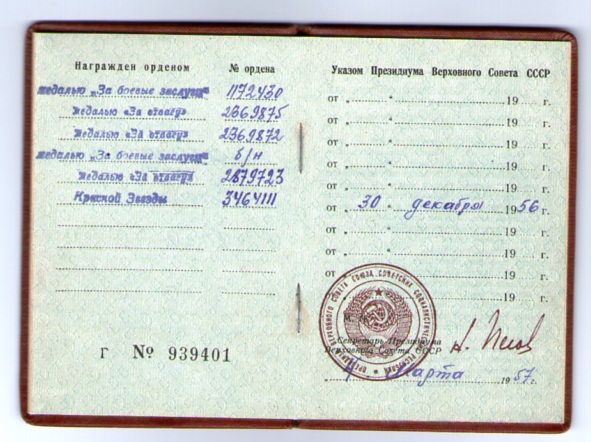 Награжден орденом
№ ордена
медалью „За боевые заслуги“ 1172430
медалью «За отвагу» 2369875
медалью «За отвагу» 2369872
медалью „За боевые заслуги“ б/н
медалью «За отвагу» 2879723
Красной Звезды 3464111
Г № 939401
Указом Президиума Верховного Совета СССР
от „ “ 19 г.
от „ “ 19 г.
от „ “ 19 г.
от „ “ 19 г.
от „ “ 19 г.
от „ 30 “ декабря 1956 г.
от „ “ 19 г.
от „ “ 19 г.
от „ “ 19 г.
от 19 г.
Секретарь Президиума
Верховного Совета СССР
марта 1957 г.